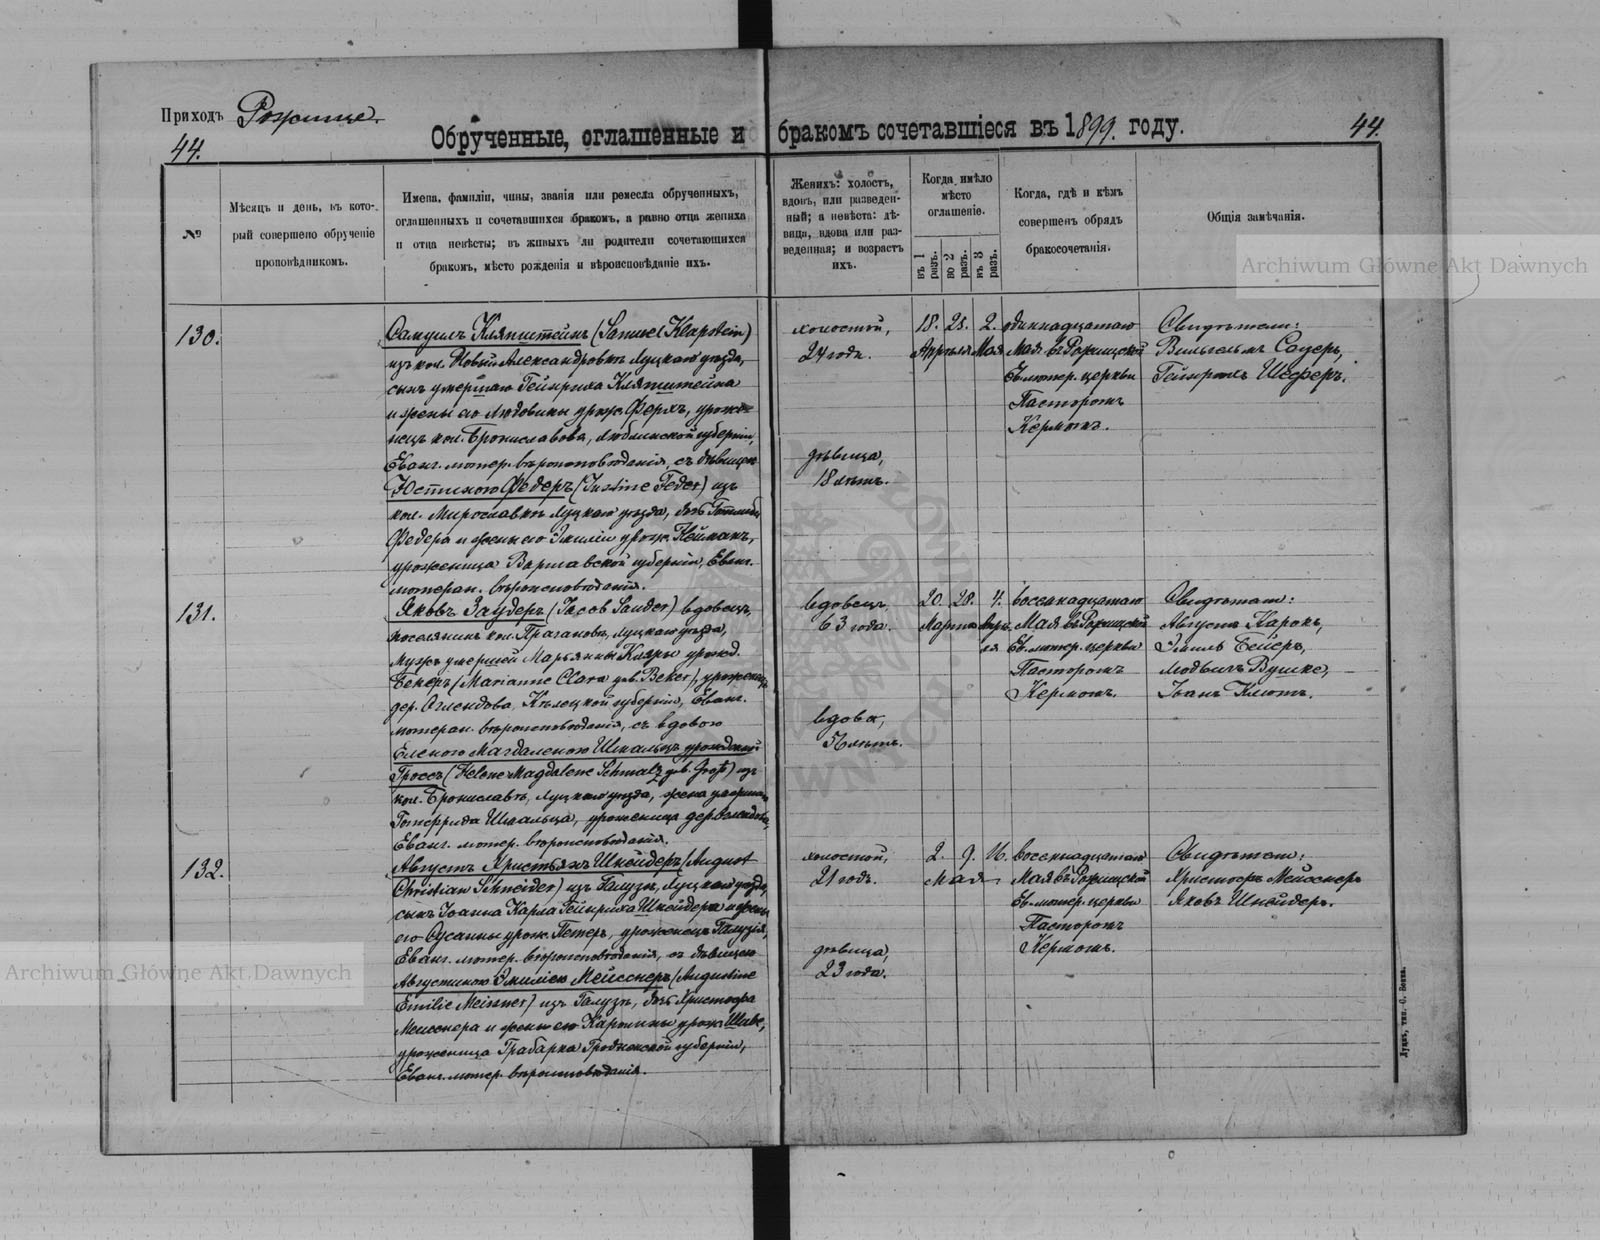 Приходъ Рожище.
44.
Обрученные, оглашенные и бракомъ сочетавшіеся въ 1899. году.
44.
№
Мѣсяцъ и день, въ кото-
рый совершено обрученіе
проповѣдникомъ.
Имена, фамиліи, чины, званія или ремесла обрученныхъ,
оглашенныхъ и сочетавшихся бракомъ, а равно отца жениха
и отца невѣсты; въ живыхъ ли родители сочетающихся
бракомъ, мѣсто рожденія и вѣроисповѣданіе ихъ.
Женихъ: холостъ,
вдовъ, или разведен-
ный; а невѣста: дѣ-
вица, вдова или раз-
веденная; и возрастъ
ихъ.
Когда имѣло
мѣсто
оглашеніе.
въ 1 разъ.
во 2 разъ.
въ 3 разъ.
Когда, гдѣ и кѣмъ
совершенъ обрядъ
бракосочетанія.
Общія замѣчанія.
Archiwum Główne Akt Dawnych
130.
Самуилъ Кляпштейнъ (Samuel Klapstein)
изъ кол. Новый Александровкѣ Луцкаго уѣзда,
сынъ умершаго Гейнриха Кляпштейна
и жены его Людовины урож. Ферхъ, уроже-
нецъ кол. Брониславова, Люблинской губерніи,
Еванг. лютер. вѣроисповѣданія, съ дѣвицею
Юстиною Федеръ (Justine Feder) изъ
кол. Мирославкѣ Луцкаго уѣзда, дочь
Федера и жены его Эмиліи урож. Нейманъ,
уроженица Варшавской губерніи, Еванг.
лютеран. вѣроисповѣданія.
холостой,
24 года.
дѣвица,
18 лѣтъ.
18. 25. 2.
Апрѣля Мая
одиннадцатаго
Мая въ Рожищской
Ев. лютер. церкви
Пасторомъ
Кермомъ.
Свидѣтели:
Вильгельмъ Сауеръ,
Гейнрихъ Шеферъ.
131.
Яковъ Заудеръ (Jacob Sauder) вдовецъ,
поселянинъ кол. Луцкаго уѣзда,
мужъ умершей Марьянны Клары урожд.
Бекеръ (Marianne Clara geb. Beker), уроженецъ
дер. Кѣлецкой губерніи, Еванг.
лютеран. вѣроисповѣданія, съ вдовою
Еленою Магдаленою Шмальцъ урожденной
Гроссъ (Helene Magdalene Schmalz geb. Groß) изъ
кол. Брониславъ, Луцкаго уѣзда, жена умершаго
Готфрида Шмальца, уроженица дер.
Еванг. лютер. вѣроисповѣданія.
вдовецъ,
63 года.
вдова,
20. 28. 4.
Марта Апрѣ-
ля
восемнадцатаго
Мая въ Рожищской
Ев. лютер. церкви
Пасторомъ
Кермомъ.
Свидѣтели:
Августъ Каронъ,
Эмиль Бейеръ,
Людвигъ Вушке,
Іванъ Клютъ.
132.
Августъ Христьянъ Шнейдеръ (August
Christian Schneider) изъ Галузы, Луцкаго уѣзда,
сынъ Іоанна Карла Гейнриха Шнейдера и жены
его Сусанны урож. Петеръ, уроженецъ Галузіи,
Еванг. лютер. вѣроисповѣданія, съ дѣвицею
Августиною Эмиліею Мейсснеръ (Augustine
Emilie Meissner) изъ Галузы, дочь Христофа
Мейсснера и жены его Каролины урож. Шиве,
уроженица Грабарка Гродненской губерніи,
Еванг. лютер. вѣроисповѣданія.
холостой,
21 годъ.
дѣвица,
23 года.
2. 9. 16.
Мая
восемнадцатаго
Мая въ Рожищской
Ев. лютер. церкви
Пасторомъ
Кермомъ.
Свидѣтели:
Христофъ Мейсснеръ
Яковъ Шнейдеръ.
Archiwum Główne Akt Dawnych